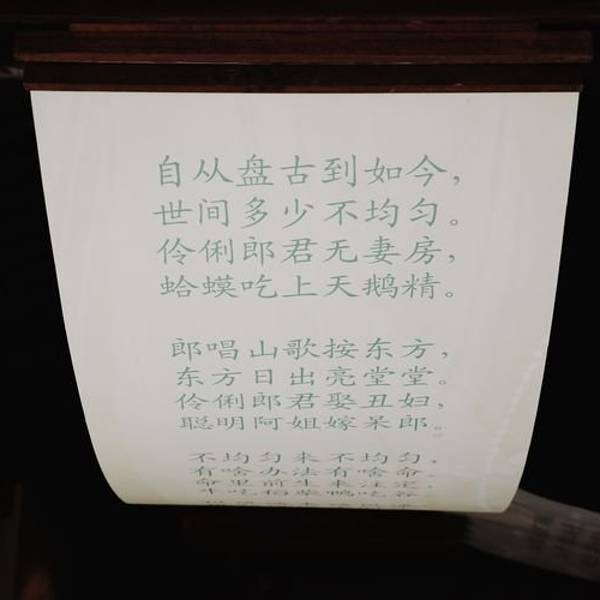 自从盘古到如今，
世间多少不均匀。
伶俐郎君无妻房，
蛤蟆吃上天鹅精。
郎唱山歌按东方，
东方日出亮堂堂。
伶俐郎君娶丑妇，
聪明阿姐嫁呆郎。
不均匀来不均匀，
有啥办法有啥命。
命里前生来注定，
牛吃稻草鸭吃谷